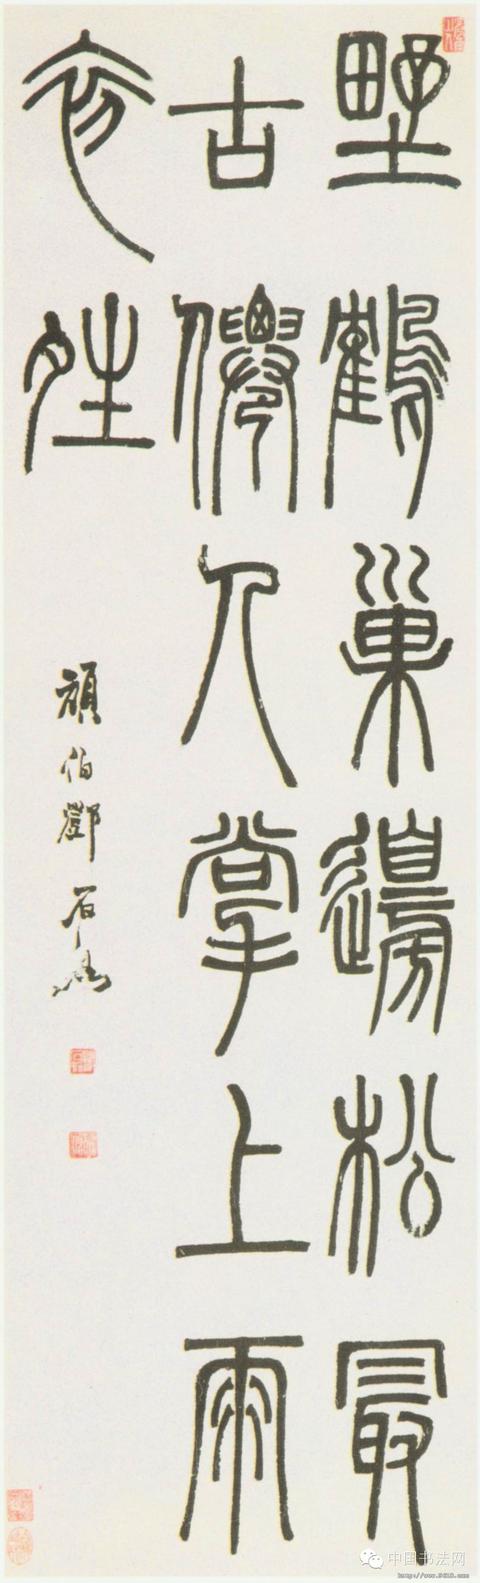 野鶴巢邊松最
古僊人掌上雨
初夝
頑伯鄧石如
中国书法网
http://www.9610.com